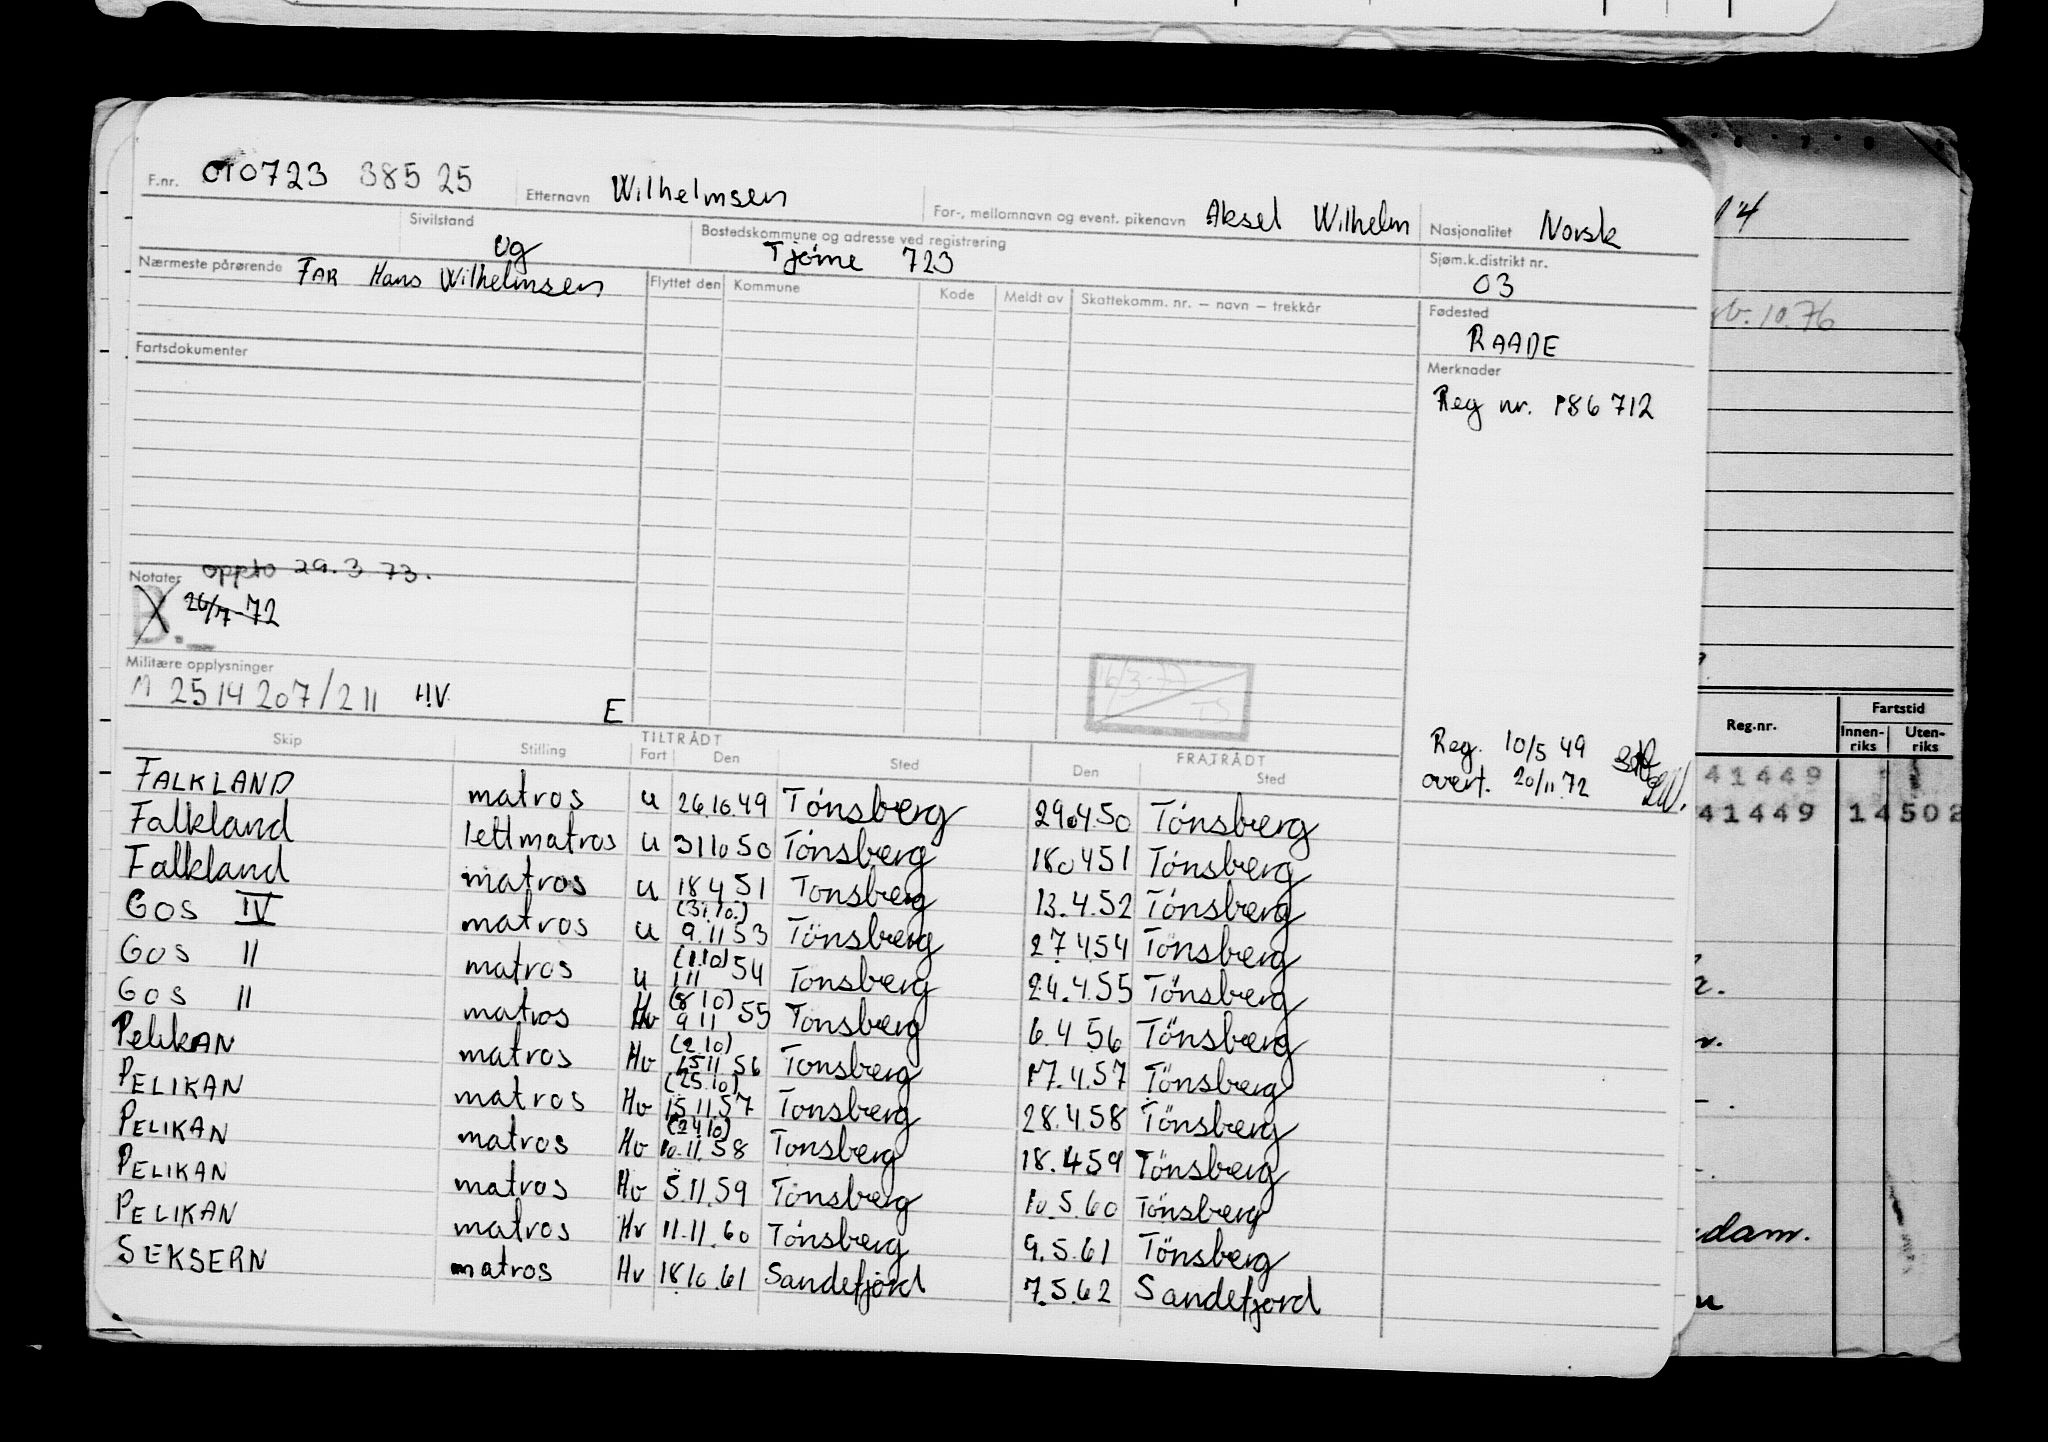 F.nr. 010723 38525 Etternavn Wilhelmsen For-, mellomnavn og event. pikenavn Aksel Wilhelm Nasjonalitet Norsk
Sivilstand ug Bostedskommune og adresse ved registrering Tjöme 723 Sjøm.k.distrikt nr. 03
Nærmeste pårørende FAR Hans Wilhelmsen Flyttet den Kommune Kode Meldt av Skattekomm. nr. — navn — trekkår Fødested
RAADE
Fartsdokumenter
Merknader
Reg nr. 186712
Notater 29.3.73.
B. 26/7-72
Militære opplysninger
M 2514207/211 HV. E
Reg. 10/5 49
overf. 20/11.72
Skip Stilling TILTRÅDT Fart Den Sted FRATRÅDT Den Sted
FALKLAND matros u 26.10.49 Tónsberg 29.4.50 Tónsberg
Falkland lettmatros u 311050 Tónsberg 180451 Tónsberg
Falkland matros u 18451 Tonsberg 13.4.52 Tónsberg
GOS IV matros u (31.10.) 9.1153 Tönsberg 27454 Tönsberg
GOS II matros u (1.10) 111 54 Tonsberg 24.455 Tönsberg
GOS II matros Hv (810) 911 55 Tonsberg 6.456 Tönsberg
PelikAN matros Hv (2.10) 1511 56 Tonsberg 17.4.57 Tönsberg
PELIKAN matros Hv (25.10) 1511.57 Tonsberg 28.4.58 Tönsberg
PELIKAN matros Hv (2410) 10.11.58 Tonsberg 18.459 Tönsberg
PELIKAN matros Hv 5.11.59 Tönsberg 10.5.60 Tönsberg
PELIKAN matros Hv 11.11.60 Tónsberg 9.5.61 Tönsberg
SEKSERN matros Hv 1810.61 Sandefjórd 7.5.62 Sandefjord
14
10.76
Reg.nr. Fartstid
Innen-riks Uten-riks
41449
41449 14502
dam.